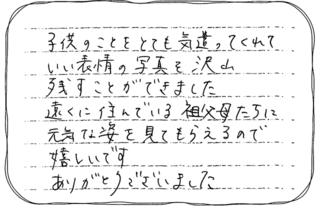 子供のことをとても気遣ってくれて
いい表情の写真を沢山
残すことができました
遠くに住んでいる祖父母たちに
元気な姿を見てもらえるので
嬉しいです
ありがとうございました